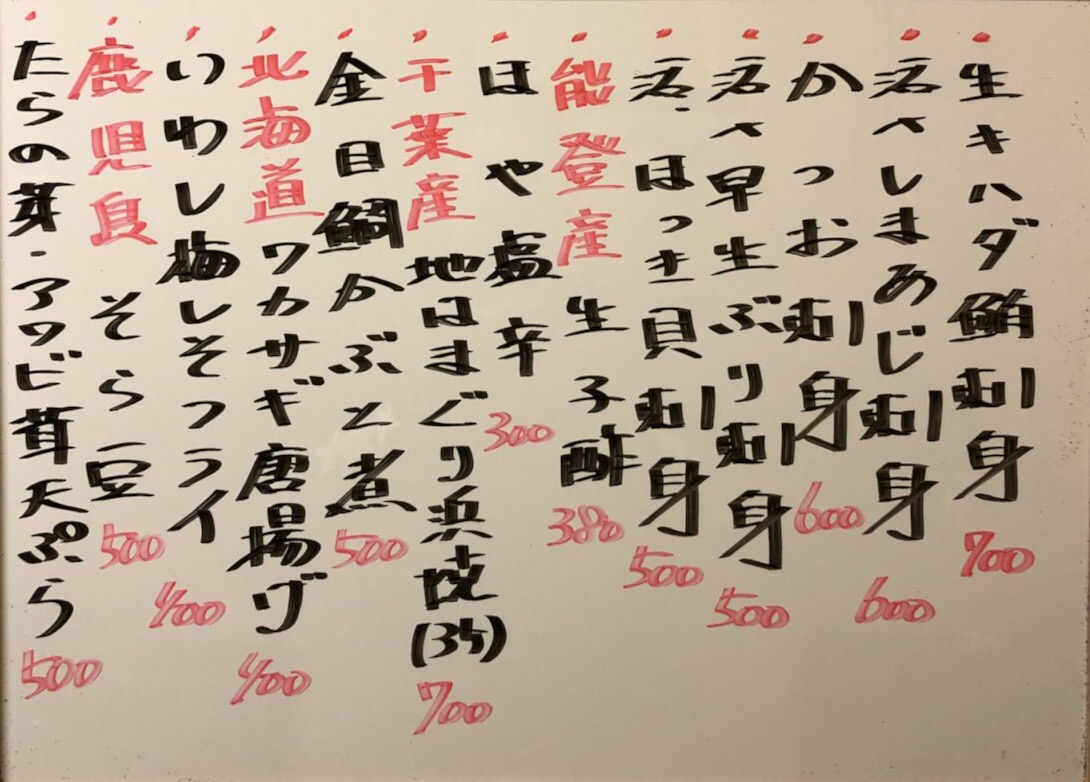 生キハダ鮪刺身 700
活〆しまあじ刺身 600
かつお刺身 600
活〆早生ぶり刺身 500
活〆ほっき貝刺身 500
能登産 生子酢 380
ほや塩辛 300
千葉産 地はまぐり浜焼(3ケ) 700
金目鯛かぶと煮 500
北海道ワカサギ唐揚げ 400
いわし梅しそフライ 400
鹿児島 そら豆 500
たらの芽・アワビ茸天ぷら 500